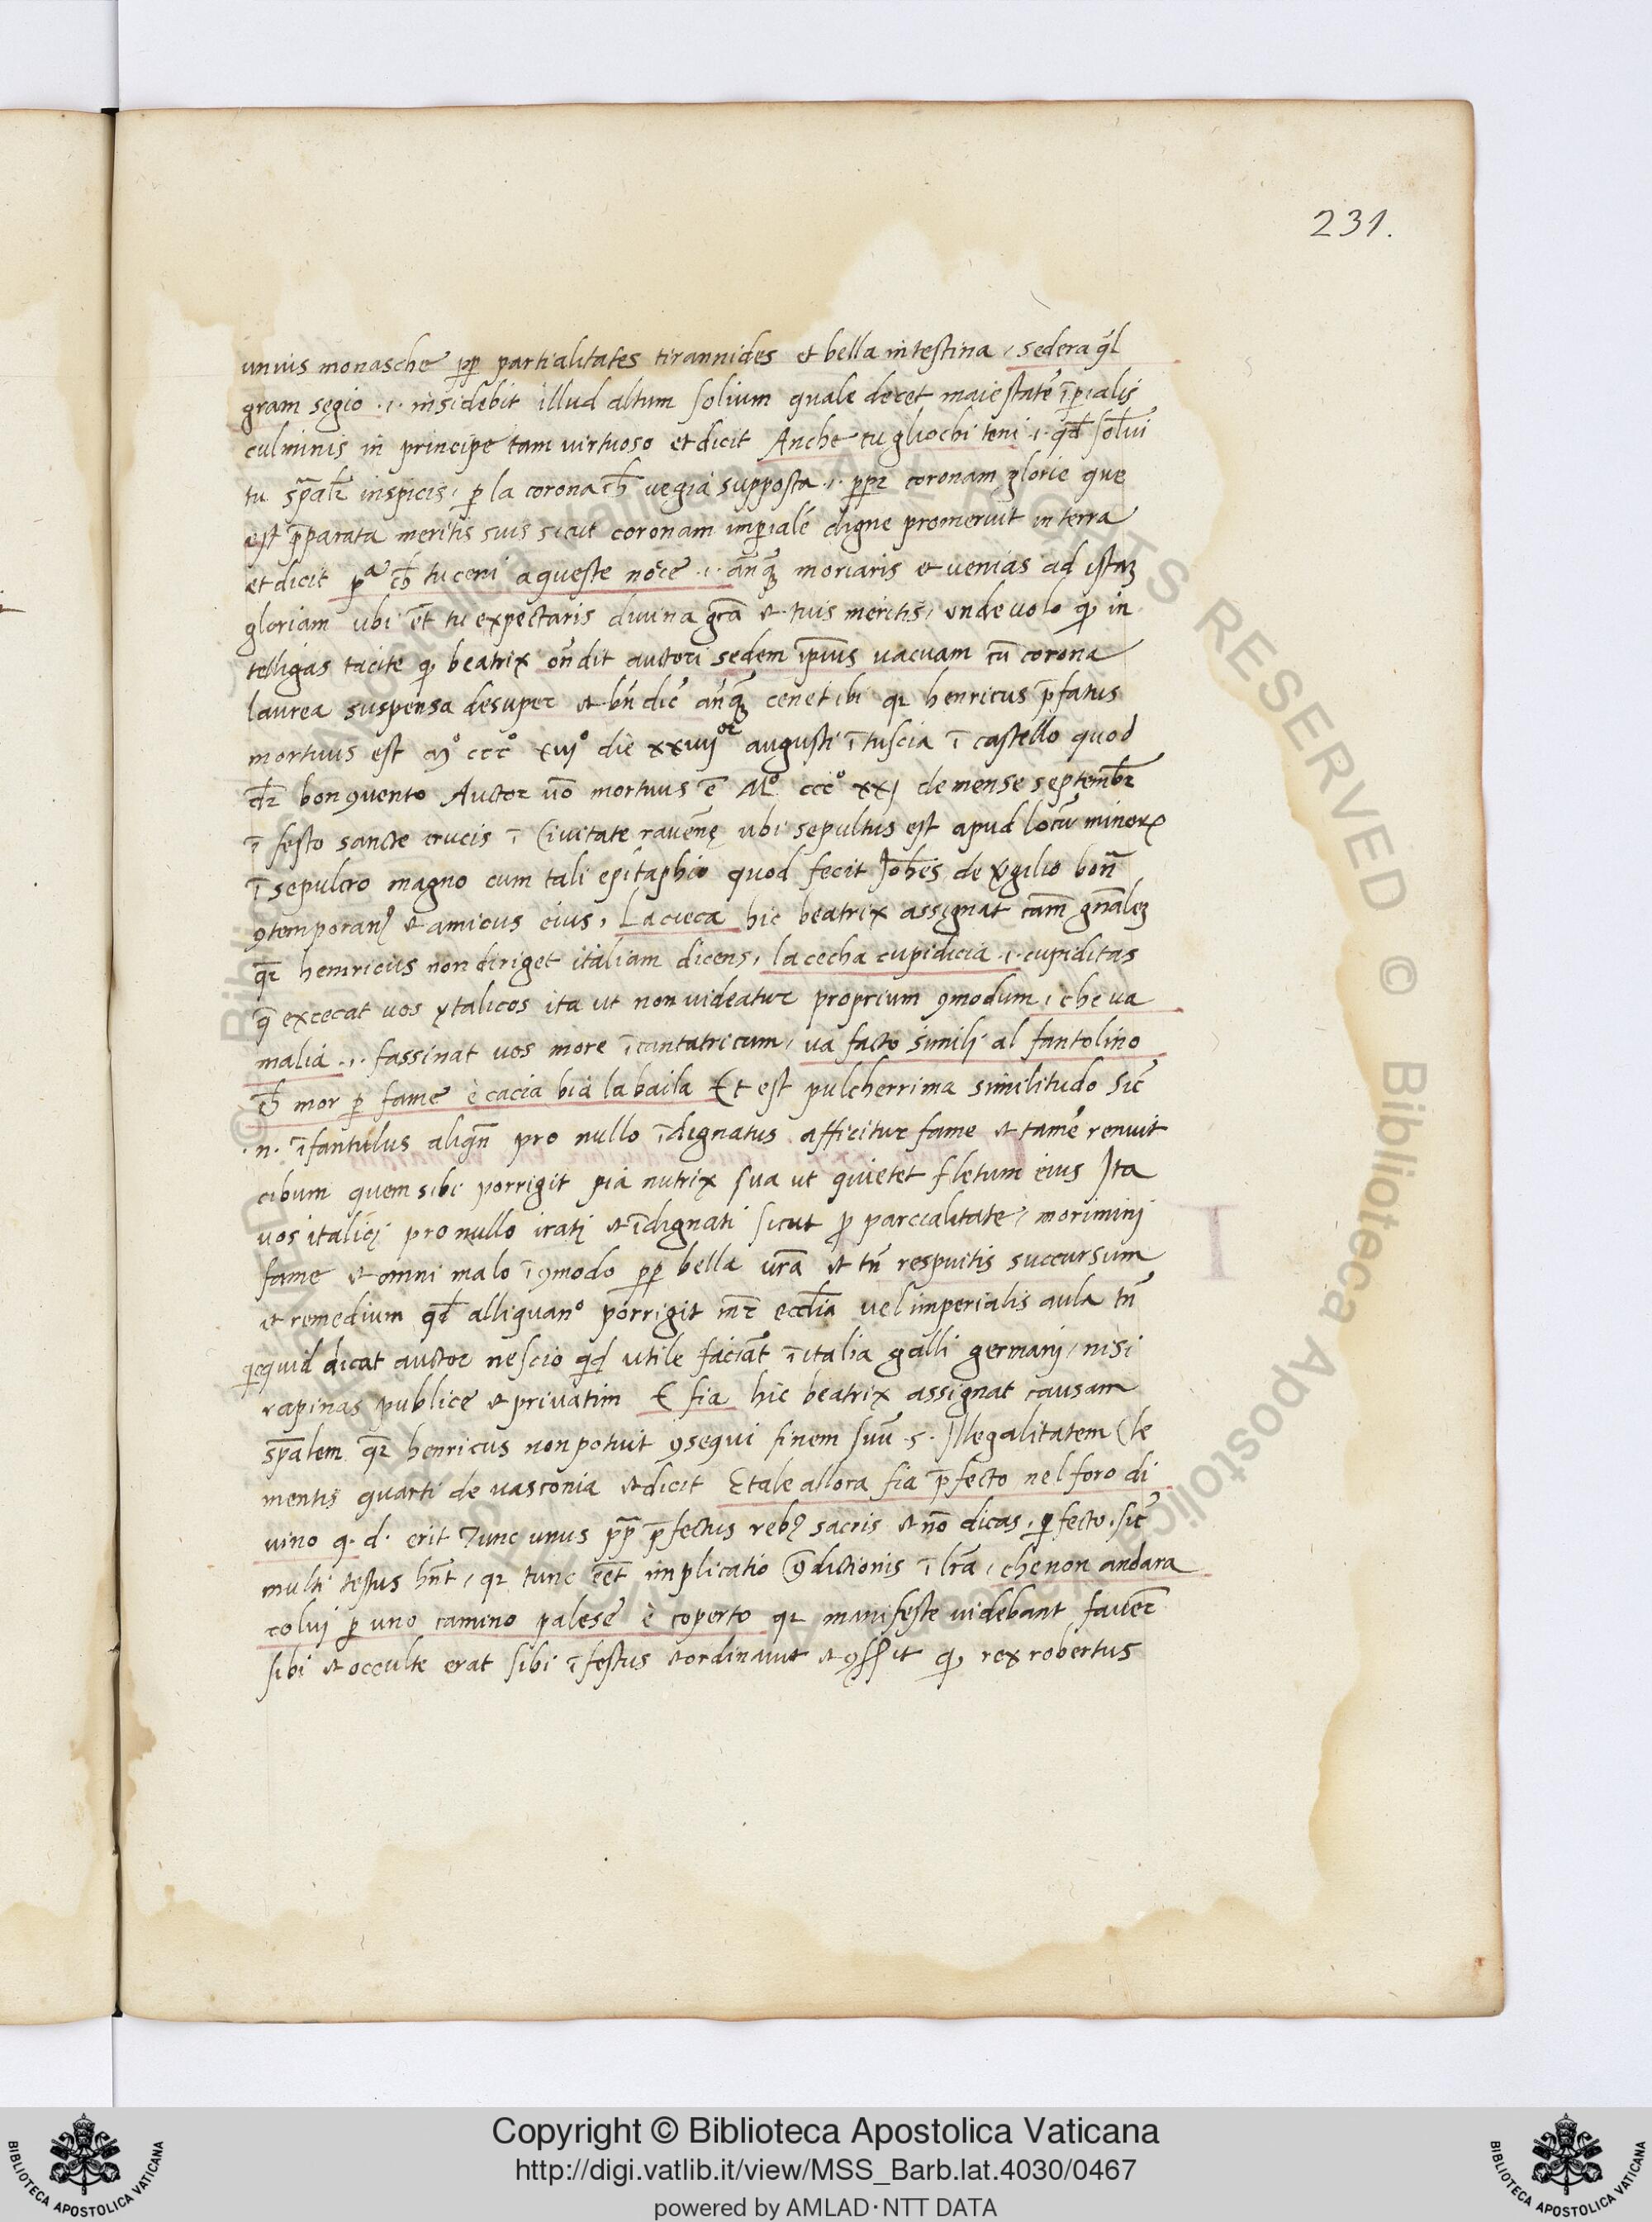 231.
unius monasche ꝓp partialitates tirannides et bella intestina, sedera q̃l
gram segio .i. insidebit illud altum solium quale decet maiestatẽ ĩperialis
culminis in principe tam virtuoso et dicit Anche tu gliochi teni .i. qđ
tu inspicis, ꝑ la corona cħ vegia supposta .i. coronam glorie que
est p̃parata meritis suis sicut coronam imperialẽ digne promeruit in terra
et dicit pª cħ tu ceni a queste noc̃e .i. an̄q̃ moriaris et venias ad istaꝫ
gloriam ubi ẽt tu expectaris divina grã et tuis meritis, unde volo ꝙ in
telligas tacite ꝙ beatrix on̄dit auctori sedem ip̄ius vacuam cũ corona
laurea suspensa desuper et bn̄ dic̃ an̄q̃ cenet ibi qꝛ henricus p̃fatus
mortuus est Mº cccº xiijº die augusti ĩ tuscia ĩ castello quod
dꝛ̃ bonꝯvento Auctor vo᷃ mortuus ẽ Mº cccº xxj de mense septembꝛ
ĩ festo sancte crucis ĩ Civitate ravẽnę ubi sepultus est apud locũ minorꝝ
ĩ sepulcro magno cum tali epitaphio quod fecit Joħes de vgilio bon̄
ꝯtemporanꝰ et amicus eius, La cieca hic beatrix assignat cam̃ gn̄aleꝫ
qꝛ̃ henricus non diriget italiam dicens, la cecha cupidicia .i. cupiditas
q̃ excecat vos ytalicos ita ut non videatur proprium ꝯmodum, che va
malia .i. fassinat vos more ĩcantatricum, va facto similj al fantolino
cħ mor ꝑ fame è cacia bia la baila Et est pulcherrima similitudo Sic̃
.n. ĩfantulus aliqn̄ pro nullo ĩdignatus afficitur fame et tamẽ renuit
cibum quem sibi porrigit pia nutrix sua ut quietet fletum eius Ita
vos italicj pro nullo iratj et ĩdignati sicut ꝓ parcialitate, moriminj
fame et omni malo ĩꝯmodo ꝓp bella vr̃a et tn̄ respuitis succursum
et remedium qđ alliquanº porrigit mr̃ eccl̃ia vel imperialis aula tn̄
quicquid dicat auctor nescio qđ utile faciãt ĩ italia galli germanj, nisi
rapinas publice et privatim E fia hic beatrix assignat causam
sp̃alem qꝛ̃ henricus non potuit ꝯsequi finem suũ .s. Illegalitatem Cle
mentis quarti de vasconia et dicit E tale allora fia p̃fecto nel foro di
vino q. d. erit Tunc unus pp̃ p̃fectus rebꝰ sacris et nõ dicas, ꝑfecto, sic̃
multi testus hn̄t, qꝛ tunc ẽet implicatio ꝯ̃dictionis ĩ lr̃a, che non andara
colvj ꝑ uno camino palese è coperto qꝛ manifeste videbant faverẽ
sibi et occulte erat sibi ĩfestus et ordinavit et ꝙ rex robertus
Copyright © Biblioteca Apostolica Vaticana
http://digi.vatlib.it/view/MSS_Barb.lat.4030/0467
powered by AMLAD·NTT DATA
BIBLIOTECA APOSTOLICA VATICANA
BIBLIOTECA APOSTOLICA VATICANA